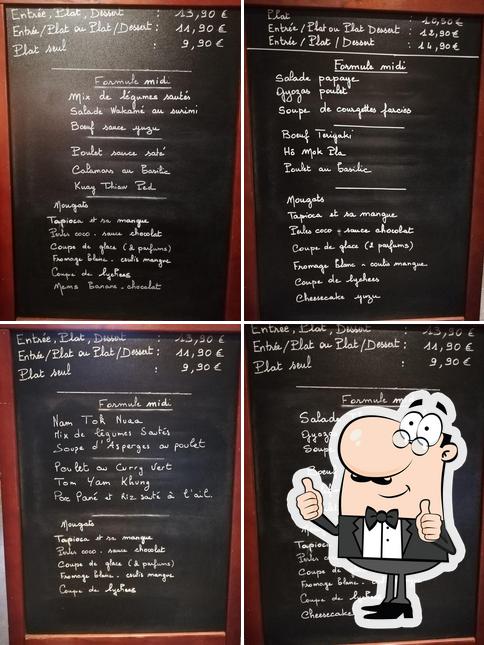 Entrée, Plat, Dessert : 13,90 €
Entrée/Plat ou Plat/Dessert : 11,90 €
Plat seul : 9,90 €
Formule midi
Mix de légumes sautés
Salade Wakamé au surimi
Boeuf sauce yuzu
Poulet sauce saté
Calamars au Basilic
Kuay Thiaw Ped
Nougats
Tapioca et sa mangue
Perles coco - sauce chocolat
Coupe de glace (2 parfums)
Fromage blanc - coulis mangue
Coupe de lychees
Nems Banane - chocolat
Plat : 10,90 €
Entrée / Plat ou Plat / Dessert : 12,90 €
Entrée / Plat / Dessert : 14,90 €
Formule midi
Salade papaye
Gyozas poulet
Soupe de courgettes farcies
Boeuf Teriyaki
Hô Mok Pla
Poulet au Basilic
Nougats
Tapioca et sa mangue
Perles coco - sauce chocolat
Coupe de glace (2 parfums)
Fromage blanc - coulis mangue
Coupe de lychees
Cheesecake yuzu
Entrée, Plat, Dessert : 13,90 €
Entrée/Plat ou Plat/Dessert : 11,90 €
Plat seul : 9,90 €
Formule midi
Nam Tok Nuaa
Mix de légumes Sautés
Soupe d'Asperges au poulet
Poulet au Curry Vert
Tom Yam Khung
Porc Pané et Riz sauté à l'ail.
Nougats
Tapioca et sa mangue
Perles coco - sauce chocolat
Coupe de glace (2 parfums)
Fromage blanc - coulis mangue
Coupe de lychees
Entrée, Plat, Dessert : 13,90 €
Entrée/Plat ou Plat/Dessert : 11,90 €
Plat seul : 9,90 €
Formule mi
Salad
Gyoza
Soup
Tapioc
Coupe de
Fromage blanc - c
Coupe de lych
Cheesecake